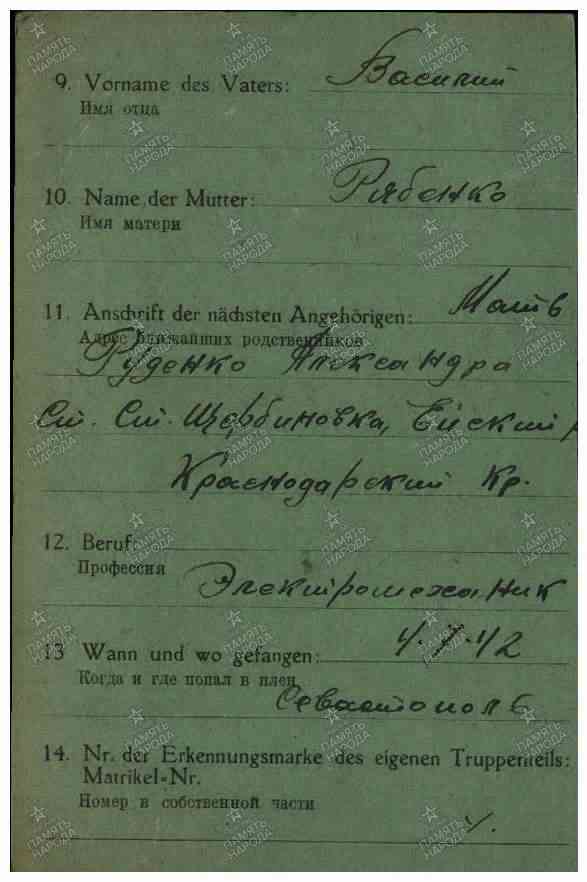 9. Vorname des Vaters: Василий
Имя отца
10. Name der Mutter: Рябенко
Имя матери
11. Anschrift der nächsten Angehörigen: Мать
Адрес ближайших родственников
Руденко Александра
Ст. Ст. Щербиновка, Ейский р
Краснодарский Кр.
12. Beruf:
Профессия
Электромеханик
13 Wann und wo gefangen: 4.7.42
Когда и где попал в плен
Севастополь
14. Nr. der Erkennungsmarke des eigenen Truppenteils:
Matrikel-Nr.
Номер в собственной части